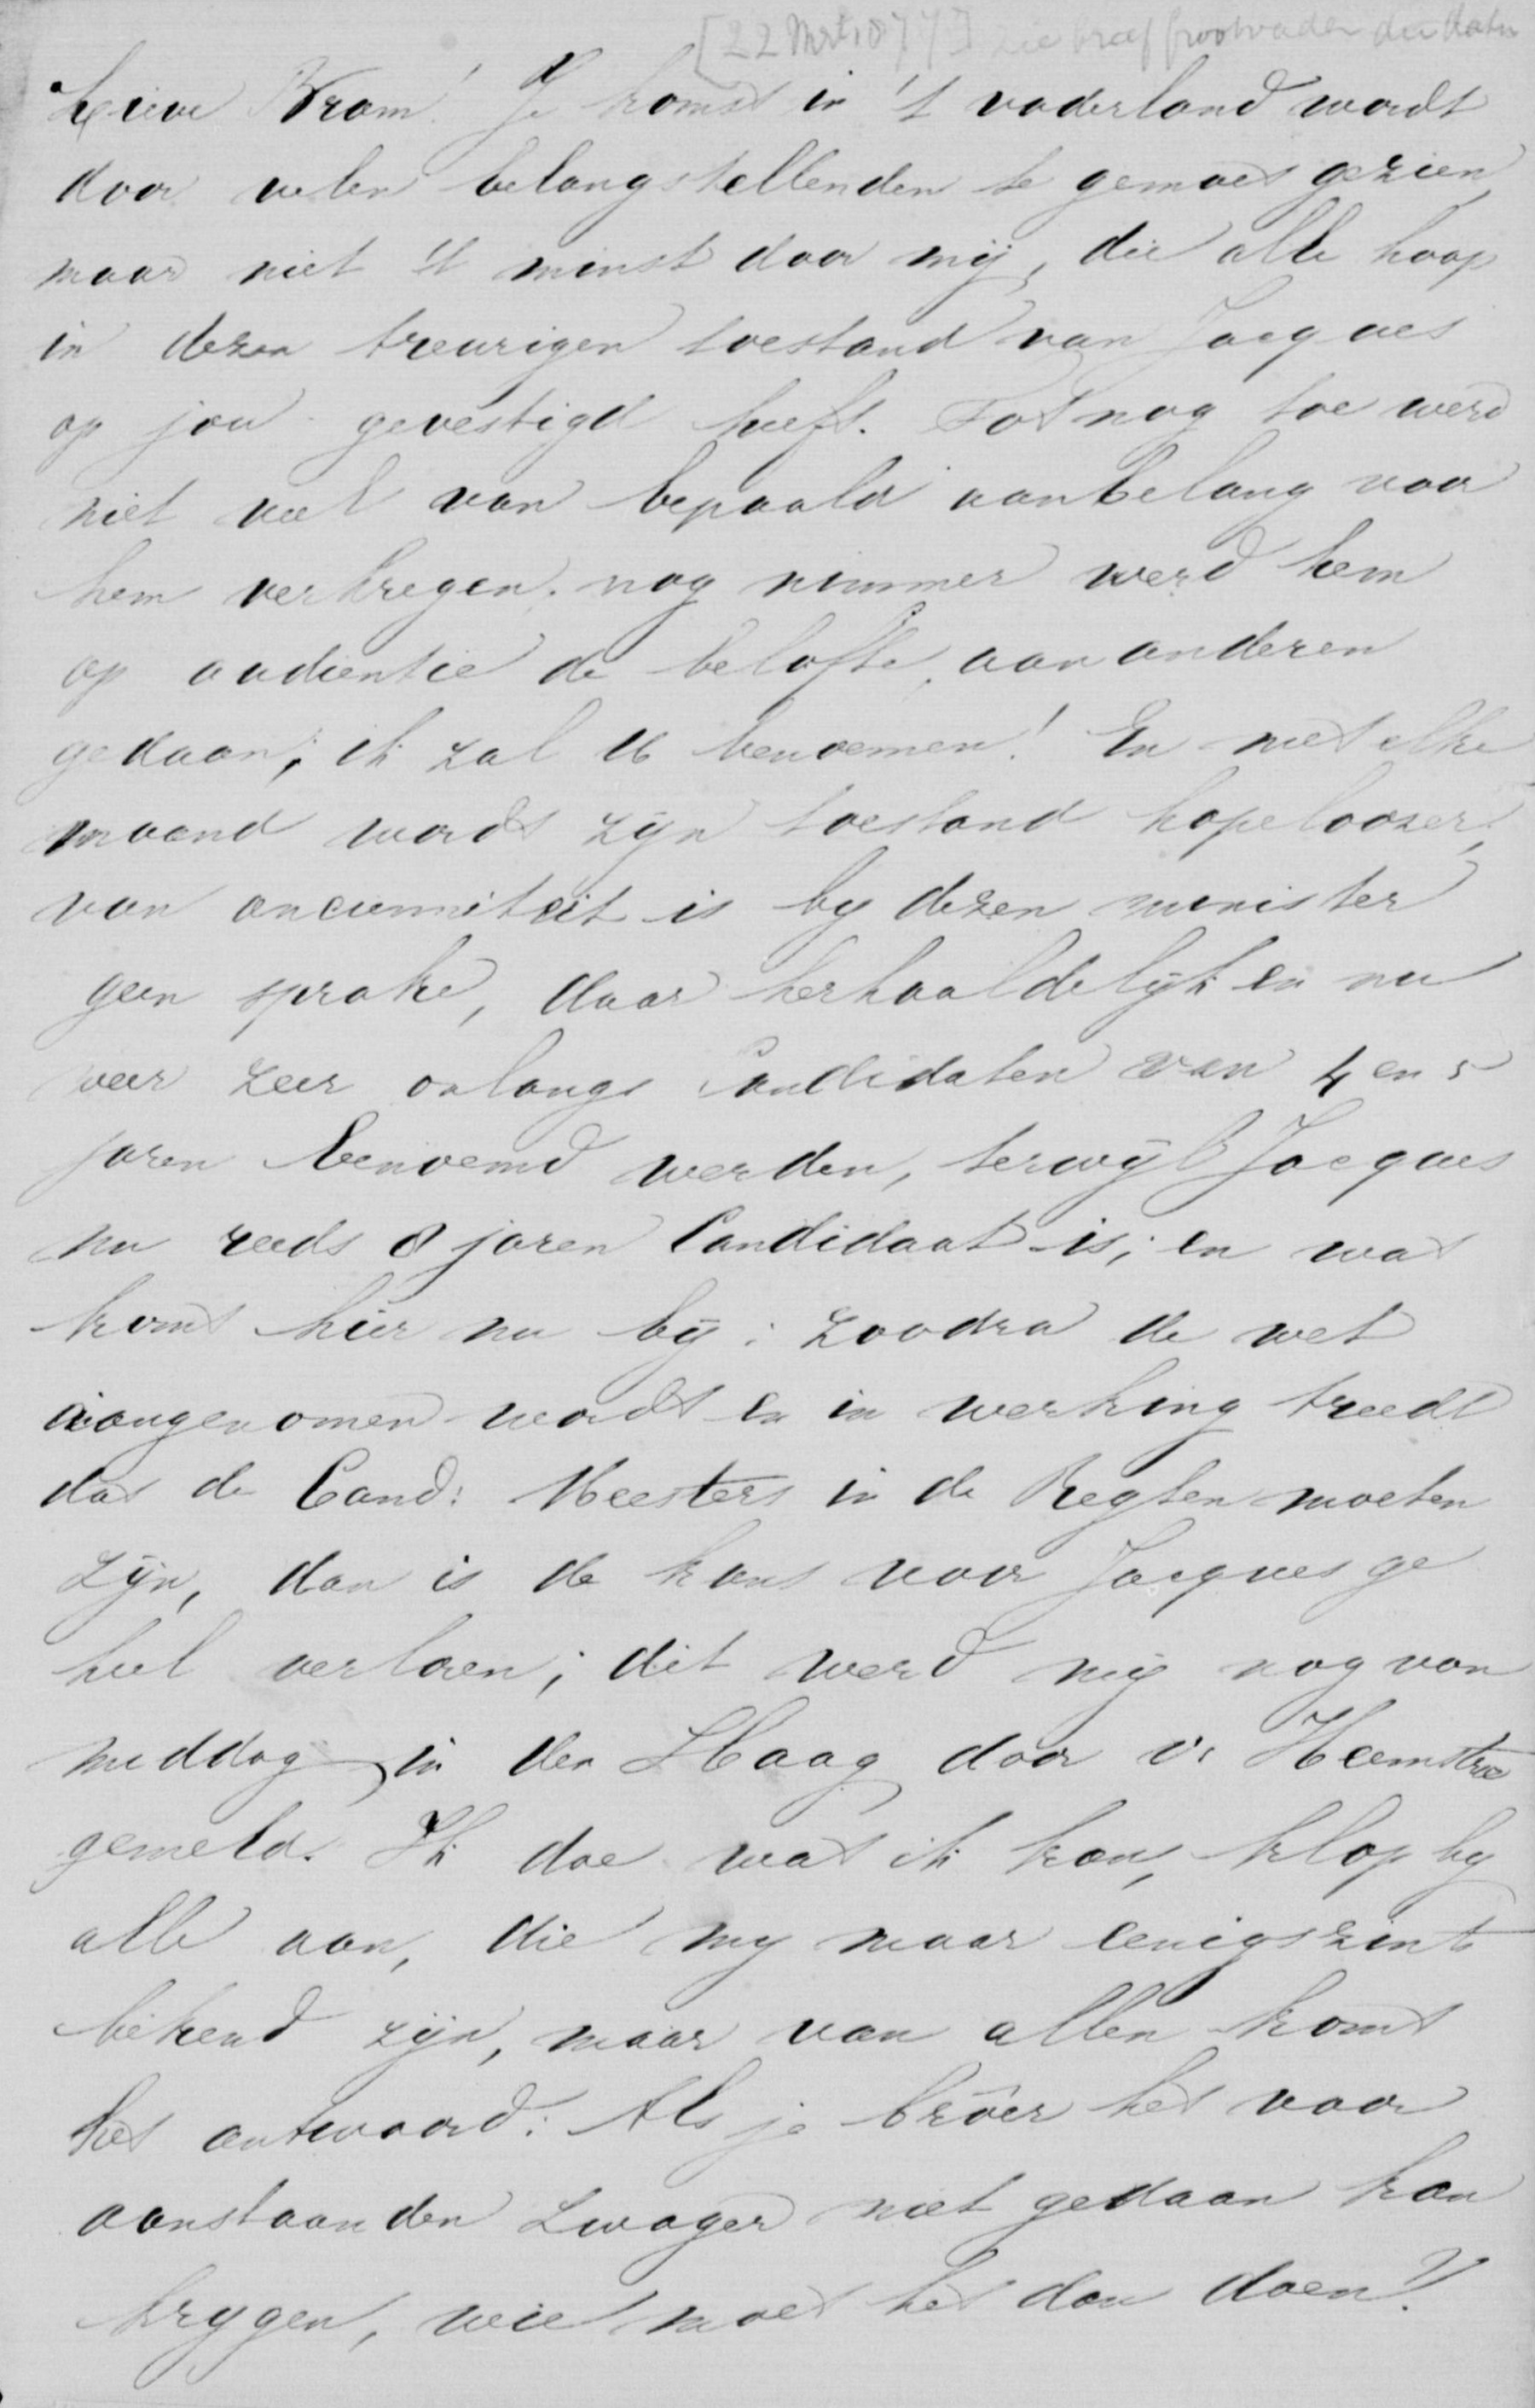 [22 Mrt 1877] zie brief grootvader die datum
Lieve Bram! Je komst in 't vaderland wordt
door velen belangstellenden te gemoet gezien,
maar niet 't minst door mij, die alle hoop
in dezen treurigen toestand van Jacques
op jou gevestigd heeft. Tot nog toe werd
niet veel van bepaald aanbelang voor
hem verkregen; nog nimmer werd hem
op audientie de belofte, aan anderen
gedaan; ik zal U benoemen! En met elke
maand wordt zyn toestand hopeloozer,
van ancienniteit is by dezen minister
geen sprake, daar herhaaldelijk en nu
weer zeer onlangs Candidaten van 4 en 5
jaren benoemd werden, terwijl Jacques
nu reeds 8 jaren Candidaat is; en wat
komt hier nu bij: zoodra de wet
aangenomen wordt en in werking treedt
dat de Cand: Meesters in de Regten moeten
zijn, dan is de kans voor Jacques ge
heel verloren; dit werd mij nog van
middag in den Haag door v. Heemstra
gemeld. Ik doe wat ik kan, klop by
alle aan, die my maar eenigszints
bekend zijn, maar van allen komt
het antwoord: Als je broer het voor
aanstaanden zwager niet gedaan kan
krygen, wie moet het dan doen?